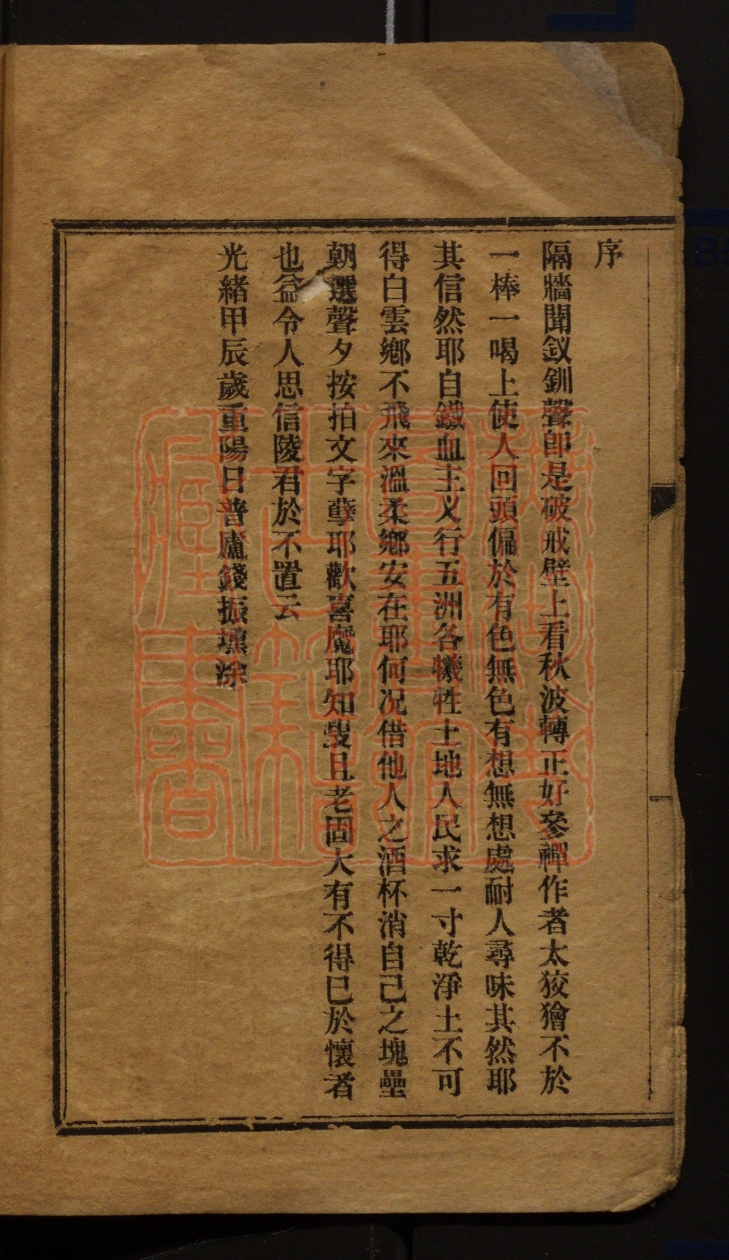 序
隔牆聞釵釧聲卽是破戒壁上看秋波轉正好參禪作者太狡獪不於
一棒一喝上使人回頭偏於有色無色有想無想處耐人尋味其然耶
其信然耶自鐵血主义行五洲各犧牲土地人民求一寸乾淨土不可
得白雲鄉不飛來溫柔鄉安在耶何况借他人之酒杯消自己之塊壘
朝選聲夕按拍文字孽耶歡喜魔耶知叟且老固大有不得已於懷者
也益令人思信陵君於不置云
光緒甲辰歲重陽日普廬錢振壎涂